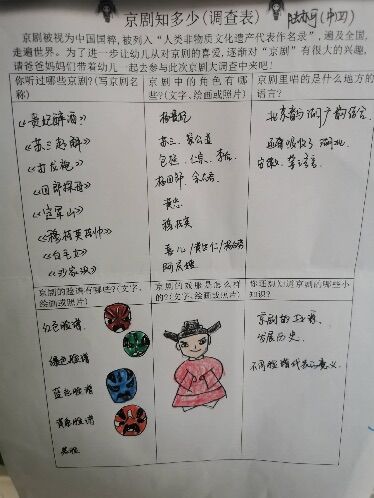 京剧知多少(调查表)
京剧被视为中国国粹,被列入“人类非物质文化遗产代表作名录”,遍及全国,
走遍世界。为了进一步让幼儿从对京剧的喜爱,逐渐对“京剧”有很大的兴趣,
请爸爸妈妈们带着幼儿一起去参与此次京剧大调查中来吧!
你听过哪些京剧?(写京剧名
称)
《贵妃醉酒》
《苏三起解》
《打龙袍》
《四郎探母》
《定军山》
《穆桂英挂帅》
《白毛女》
《沙家浜》
京剧中的角色有哪
些?(文字、绘画或照片)
杨贵妃
苏三、崇公道
杨四郎、佘太君
黄忠
穆桂英
喜儿/黄世仁/杨白劳
阿庆嫂
京剧里唱的是什么地方的
语言?
京剧的脸谱有哪些?(文字、
绘画或照片)
红色脸谱
绿色脸谱
蓝色脸谱
黄色脸谱
黑脸
京剧的戏服是怎么样
的?(文字、绘画或照片)
你还想知道京剧的哪些小
知识?
京剧的
发展历史
不同脸谱代表的意义